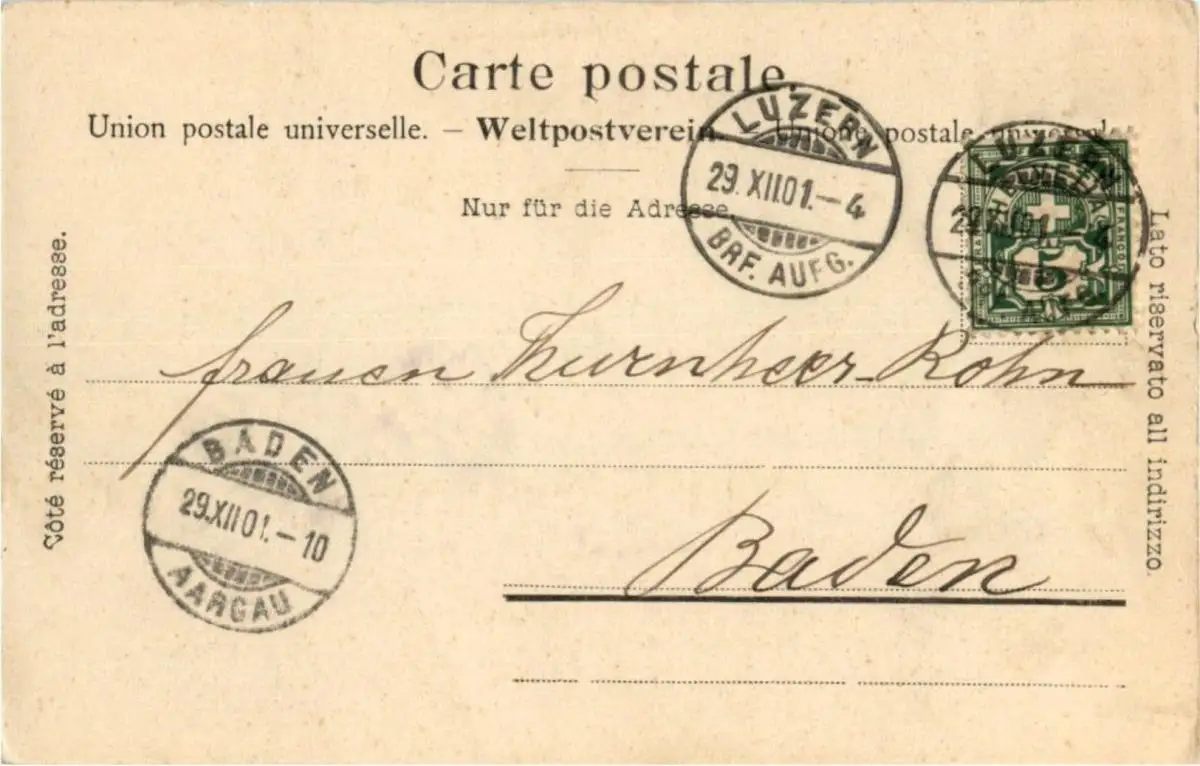 Carte postale.
Union postale universelle. – Weltpostverein. – Unione postale universale
Nur für die Adresse.
LUZERN
29.XII.01.–4
BRF. AUFG.
LUZERN
29.XII.01.–4
HELVETIA
FRANCO
5
Côté réservé à l'adresse.
Lato riservato all indirizzo.
frauen Thurnheer-Rohn
BADEN
29.XII.01.–10
AARGAU
Baden